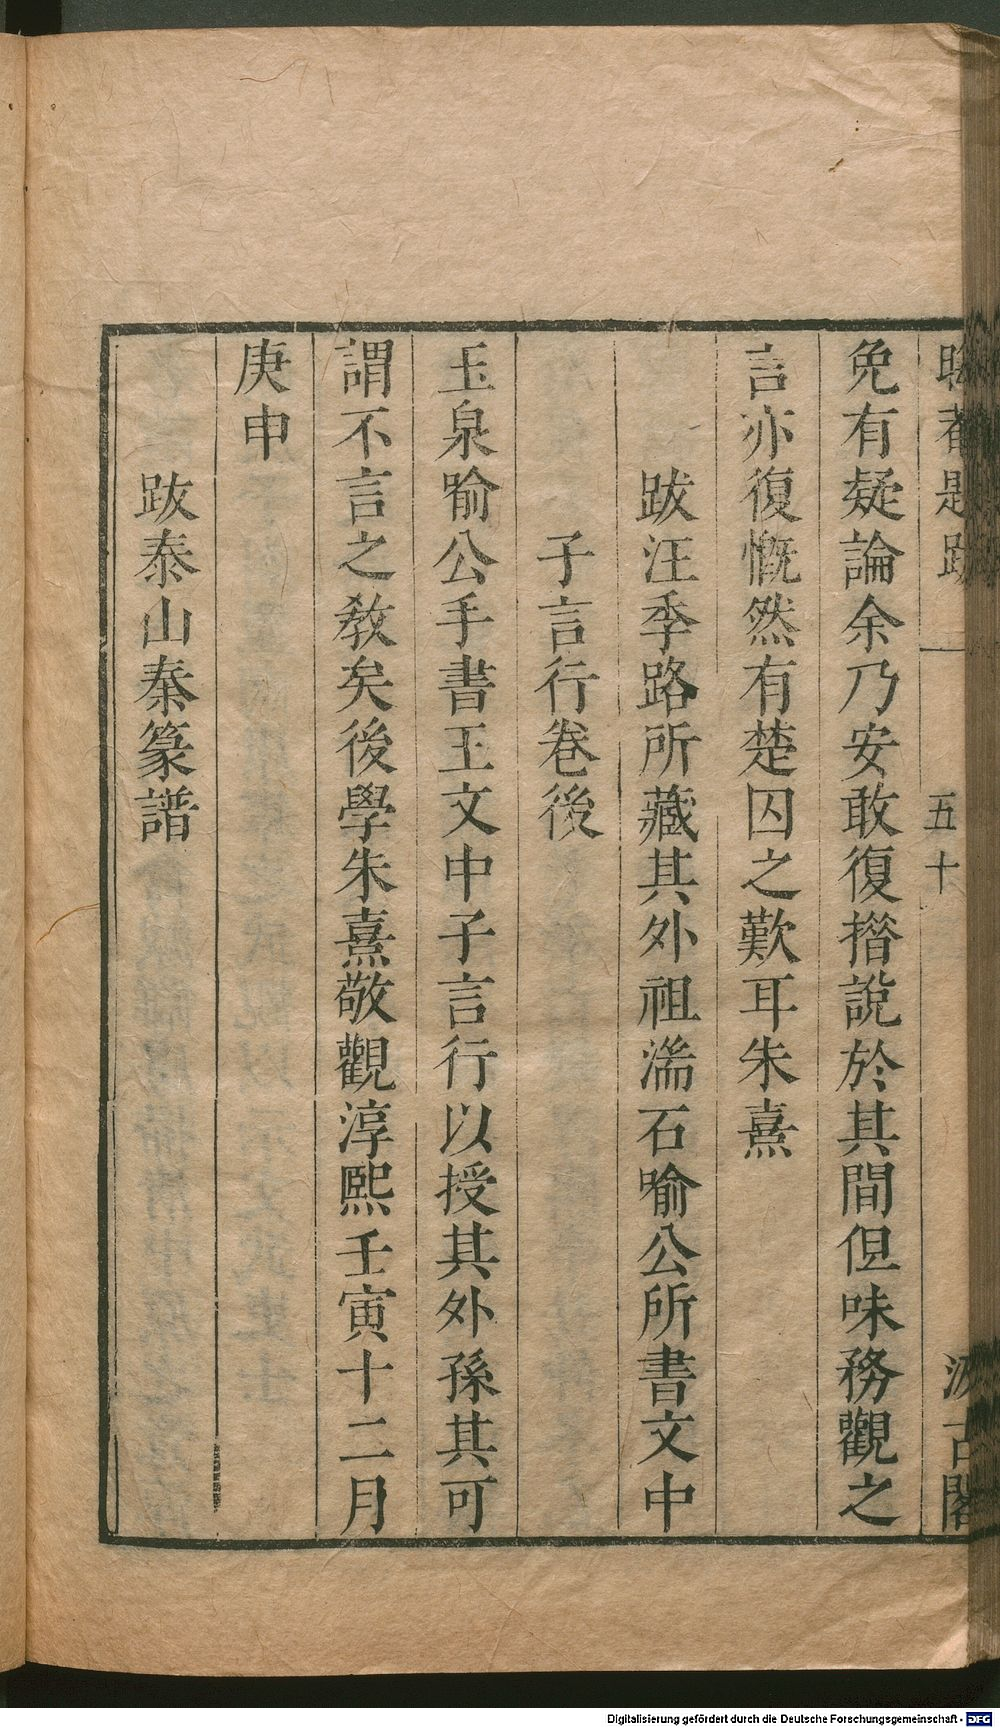 晦菴題跋 五十 汲古閣
免有疑論余乃安敢復㨜說於其間但味務觀之
言亦復慨然有楚囚之歎耳朱熹
跋汪季路所藏其外祖湍石喻公所書文中
子言行卷後
玉泉喻公手書王文中子言行以授其外孫其可
謂不言之敎矣後學朱熹敬觀淳熙壬寅十二月
庚申
跋泰山秦篆譜
Digitalisierung gefördert durch die Deutsche Forschungsgemeinschaft - DFG